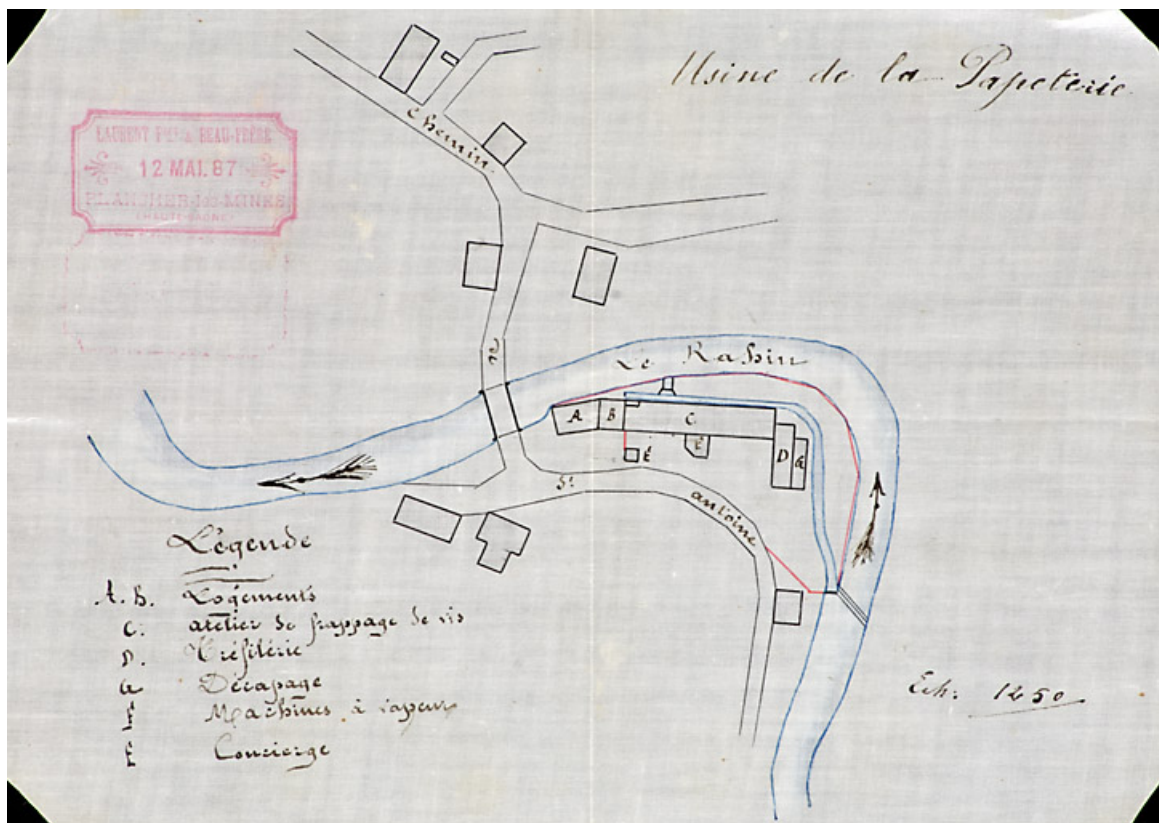 Usine de la Papeterie
LAURENT FRES & BEAU-FRÈRE
12 MAI. 87
PLANCHER-LES-MINES
(HAUTE-SAÔNE)
Chemin
de
St
antoine
Le Rahin
A
B
C
D
G
E
É
Légende
A. B. Logements
C. atelier de frappage de vis
D. Tréfilérie
G Décapage
Machines à vapeur
É Concierge
Ech. 1250